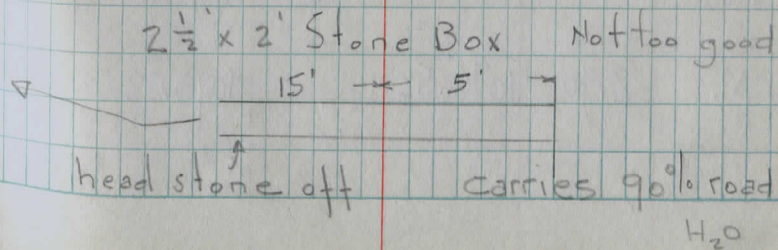 2 ½' x 2' Stone Box Not too good
15' 5'
head stone off carries 90% road
H₂O